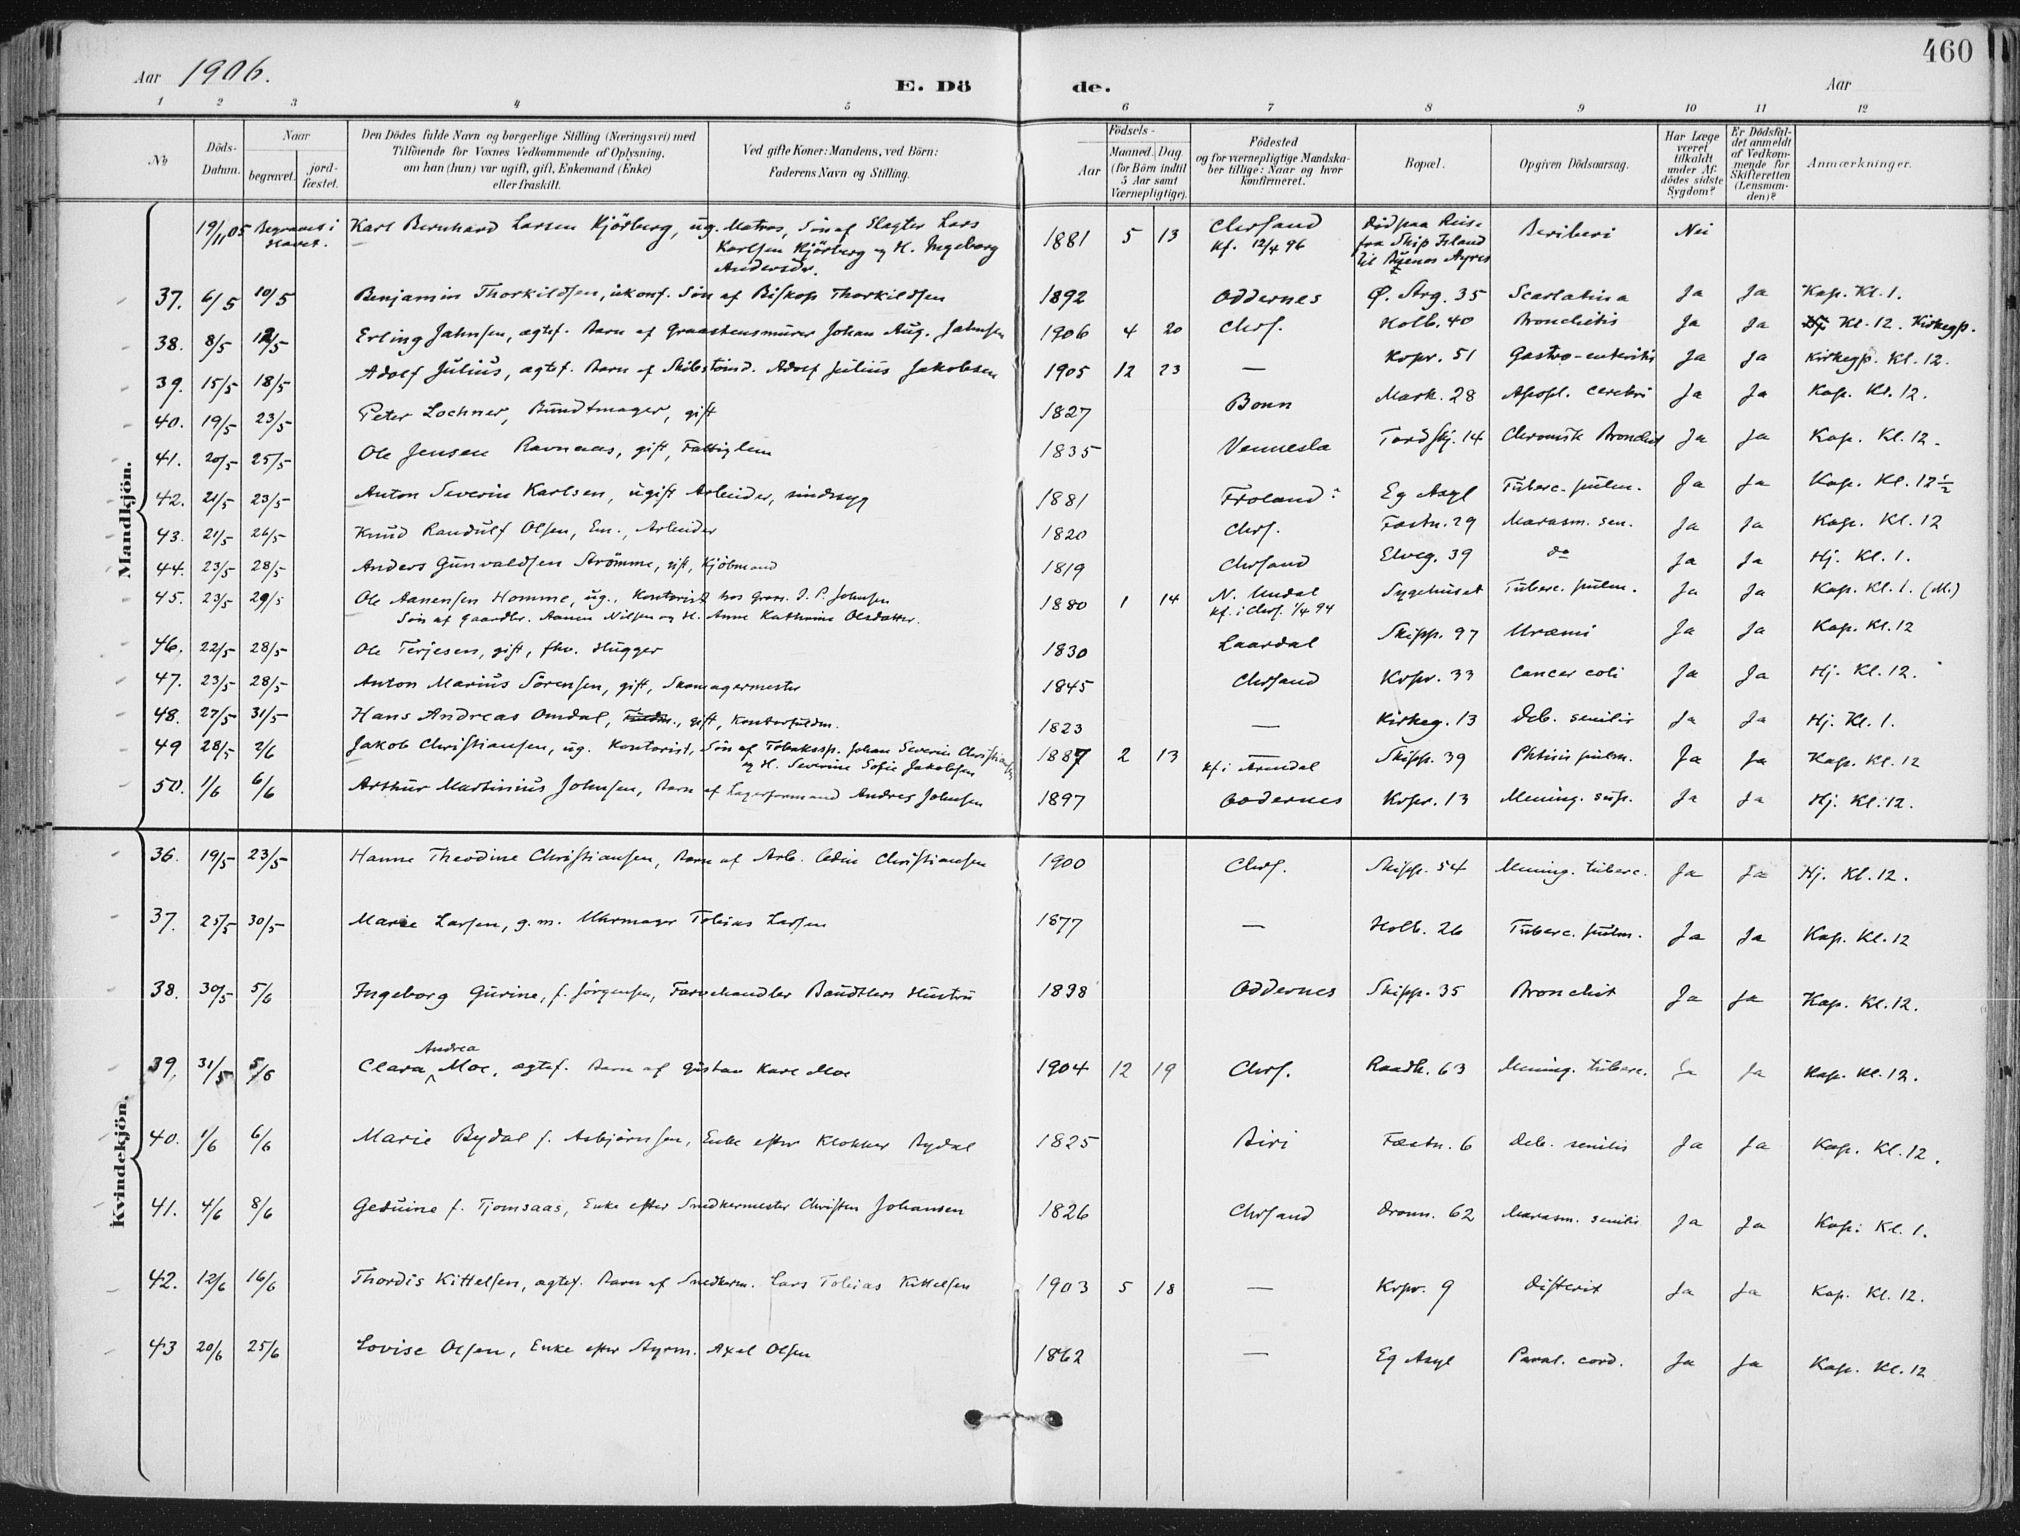 460
Aar 1906. E. Dö de. Aar
1 2 3 4 5 6 7 8 9 10 11 12
No Döds-Datum. Naar begravet. jord-fæstet. Den Dödes fulde Navn og borgerlige Stilling (Næringsvei) med Tilföiende for Voxnes Vedkommende af Oplysning, om han (hun) var ugift, gift, Enkemand (Enke) eller fraskilt. Ved gifte Koner: Mandens, ved Börn: Faderens Navn og Stilling. Födsels- Aar Maaned. Dag (for Börn indtil 5 Aar samt Værnepligtige). Födested og for værnepligtige Mandskaber tillige: Naar og hvor Konfirmeret. Bopæl. Opgiven Dödsaarsag. Har Læge været tilkaldt under Afdödes sidste Sygdom? Er Dödsfaldet anmeldt af Vedkommende for Skifteretten (Lensmanden)? Anmærkninger.
Mandkjön.
19/11 05 Begravet i Havet. Karl Bernhard Larsen Kjörberg, ug. Matros, Sön af Slagter Lars 1881 5 13 Chrsand Död paa Reise Beriberi Nei
Karlsen Kjörberg og H. Ingeborg kf. 12/4 96 fra Skip Island
Andersdr. til Buenos Ayres
37. 6/5 10/5 Benjamin Thorkildsen, ukonf. Sön af Biskop Thorkildsen 1892 Oddernes Ø. Strg. 35 Scarlatina Ja Ja Kap. Kl. 1.
38. 8/5 12/5 Erling Jahnsen, ægtef. Barn af Graastensmurer Johan Aug. Jahnsen 1906 4 20 Chrs. Holb. 40 Bronchitis Ja Ja Kl. 12. Kirkegp.
39. 15/5 18/5 Adolf Julius, ægtef. Barn af Skibstömd. Adolf Julius Jakobsen 1905 12 23 — Kopr. 51 Gastro-enteritis Ja Ja Kirkegp. Kl. 12.
40. 19/5 23/5 Peter Lochner, Bundtmager, gift 1827 Bonn Mark. 28 Apopl. cerebri Ja Ja Kap. Kl. 12.
41. 20/5 25/5 Ole Jensen Ravnaas, gift, Fattiglem 1835 Vennesla Tordskj. 14 Chronisk Bronchit Ja Ja Kap. Kl. 12.
42. 21/5 23/5 Anton Severin Karlsen, ugift Arbeider, sindssyg 1881 Froland: Eg Asyl Tuberc. pulm. Ja Ja Kap. Kl. 12 1/2
43. 21/5 26/5 Knud Randulf Olsen, Em., Arbeider 1820 Chrs. Fæstn. 29 Marasm. sen. Ja Ja Kap. Kl. 12
44. 23/5 28/5 Anders Gunvaldsen Strömme, gift, Kjöbmand 1819 Chrsand Elveg. 39 do Ja Ja Hj. Kl. 1.
45. 23/5 29/5 Ole Aanensen Homme, ug., Kontorist hos gross. J. P. Johnsen 1880 1 14 N. Undal Sygehuset Tuberc. pulm. Ja Ja Kap. Kl. 1. (M.)
Sön af Gaardbr. Aanen Nilsen og H. Anne Kathrine Olsdatter. kf. i Chrs. 1/4 94
46. 22/5 28/5 Ole Terjesen, gift, fhv. Hugger 1830 Laardal Skipp. 97 Uræmi Ja Ja Kap. Kl. 12
47. 23/5 28/5 Anton Marius Sörensen, gift, Skomagermester 1845 Chrsand Kopr. 33 Cancer coli Ja Ja Hj. Kl. 12.
48. 27/5 31/5 Hans Andreas Omdal, Fuldm., gift, Kontorfuldm. 1823 — Kirkeg. 13 Deb. senilis Ja Ja Hj. Kl. 1.
49 28/5 2/6 Jakob Christiansen, ug. Kontorist, Sön af Tobakssp. Johan Severin Christiansen 1887 2 13 — Skipp. 39 Phtisis pulm. Ja Ja Kap. Kl. 12
og H. Severine Sofie Jakobsen kf. i Arendal
50. 1/6 6/6 Arthur Martinius Johnsen, Barn af Lagerformand Andres Johnsen 1897 Oddernes Kopr. 13 Mening. Ja Ja Hj. Kl. 12.
Kvindekjön.
36. 19/5 23/5 Hanne Theodine Christiansen, Barn af Arb. Edin Christiansen 1900 Chrs. Skipp. 54 Mening. tuberc. Ja Ja Hj. Kl. 12.
37. 25/5 30/5 Marie Larsen, g. m. Uhrmager Tobias Larsen 1877 — Holb. 26 Tuberc. pulm. Ja Ja Kap. Kl. 12
38. 30/5 5/6 Ingeborg Gurine, f. Jörgensen, Farvehandler Baudtlers Hustru 1838 Oddernes Skipp. 35 Bronchit Ja Ja Kap. Kl. 12.
Andrea
39. 31/5 5/6 Clara Moe, ægtef. Barn af Gustav Kare Moe 1904 12 19 Chrs. Raadh. 63 Mening. tuberc. Ja Ja Kap. Kl. 12.
40. 1/6 6/6 Marie Bydal f. Asbjörnsen, Enke efter Klokker Bydal 1825 Biri Fæstn. 6 Deb. senilis Ja Ja Kap. Kl. 12.
41. 4/6 8/6 Geduine f. Tjomsaas, Enke efter Snedkermester Christen Johansen 1826 Chrsand Dronn. 62 Marasm. senilis Ja Ja Kap. Kl. 1.
42. 12/6 16/6 Thordis Kittelsen, ægtef. Barn af Snedkerm. Lars Tobias Kittelsen 1903 5 18 — Kopr. 9 Difterit Ja Ja Kap. Kl. 12.
43 20/6 25/6 Lovise Olsen, Enke efter Styrm. Axel Olsen 1862 — Eg Asyl Paral. cord. Ja Ja Kap. Kl. 12